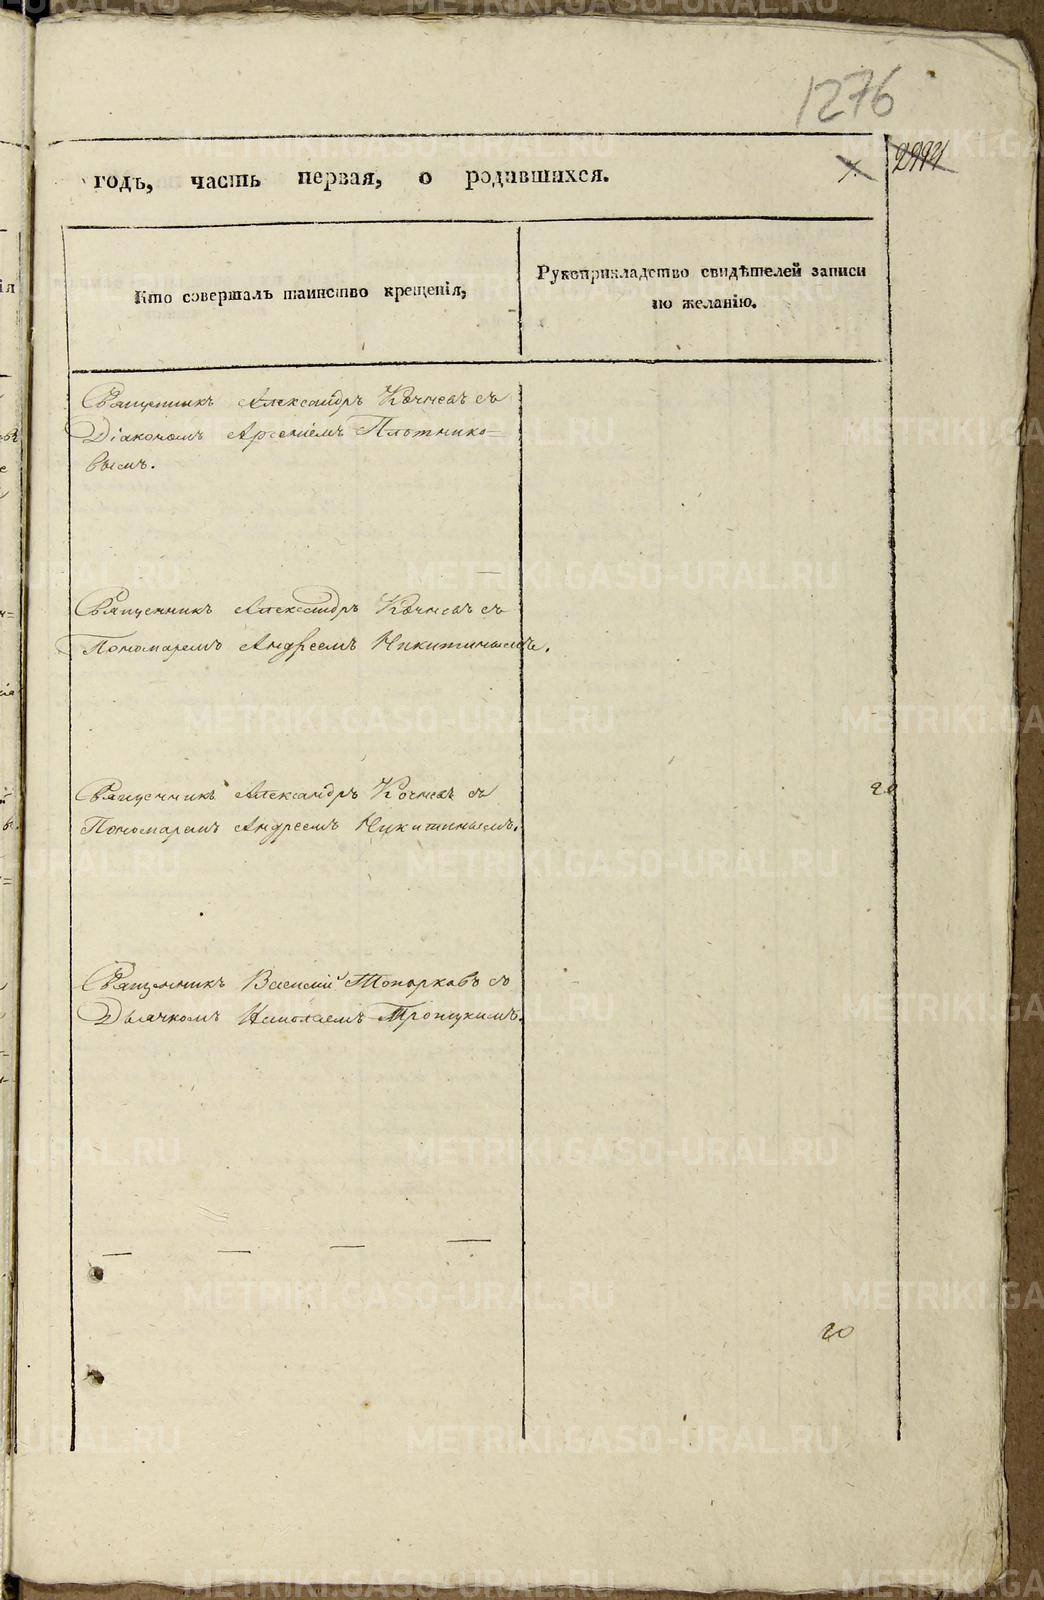 1276
годъ, часть первая, о родившихся.
Кто совершалъ таинство крещенія,
Рукоприкладство свидѣтелей записи
по желанію.
Священникъ Александръ Кочневъ съ
Діакономъ Арсеніемъ Плотнико=
вымъ.
Священникъ Александръ Кочневъ съ
Пономаремъ Андреемъ Никитинымъ.
Священникъ Александръ Кочневъ съ
Пономаремъ Андреемъ Никитинымъ.
20
Священникъ Василій Топорковъ съ
Дьячкомъ Николаемъ Троицкимъ.
20
METRIKI.GASO-URAL.RU